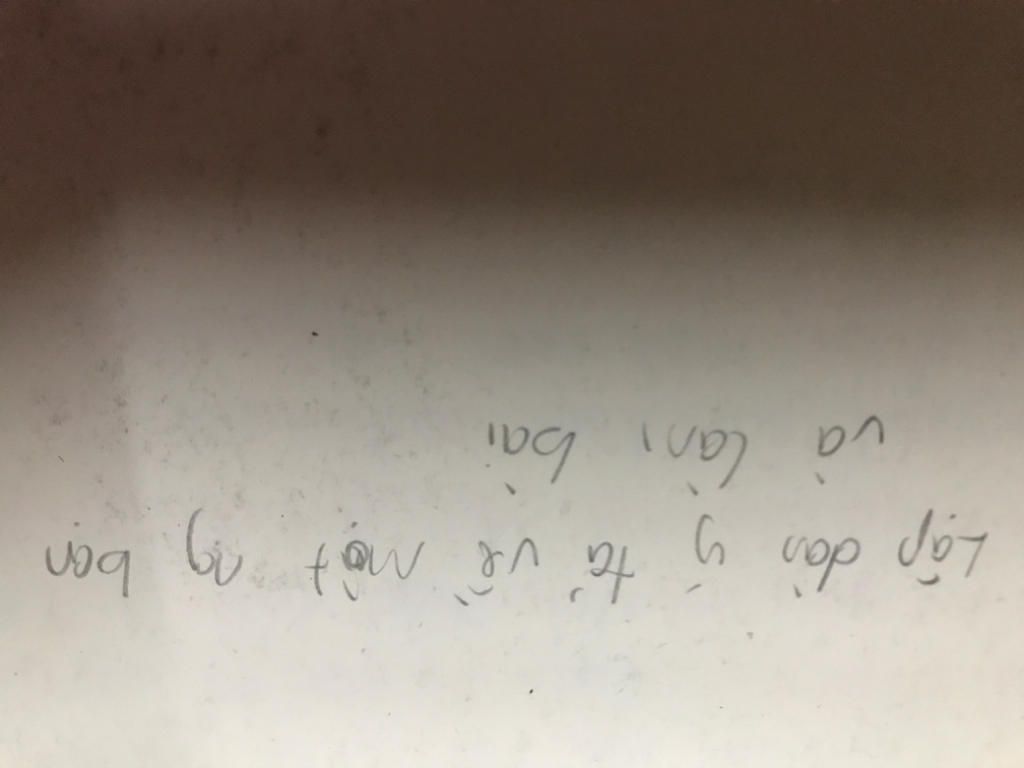 Lập dàn ý tả về một ng bạn
và làm bài